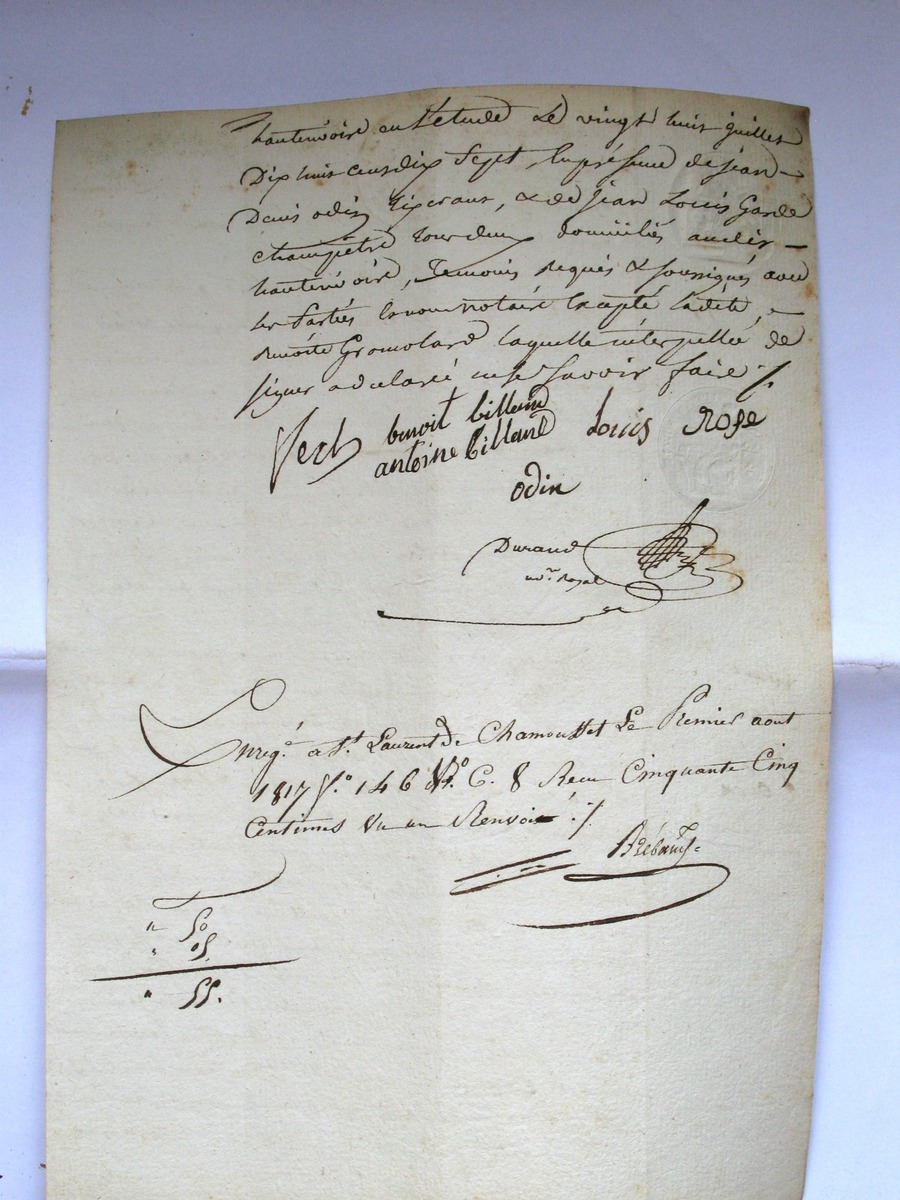 hauterivoire en l'etude Le vingt huit juillet
Dix huit cent dix Sept, En présence de jean
Denis odin, & de jean Louis Garde
champêtre tous deux domiciliés audit
hauterivoire, Temoins requis & soussignés avec
Les Parties & nous notaire Excepté Ladite
Benoite Gromolard laquelle interpellée de
signer a declaré ne le savoir faire ./.
benoit billiand Louis Rose
antoine billand
odin
Durand
no.re Royal
Enreg.é a S.t Laurent de Chamousset Le Premier aout
1817 f.o 146 V.o C. 8 Recu Cinquante Cinq
Centimes Vu un Renvoi ./.
" 50
" 05.
" 55.